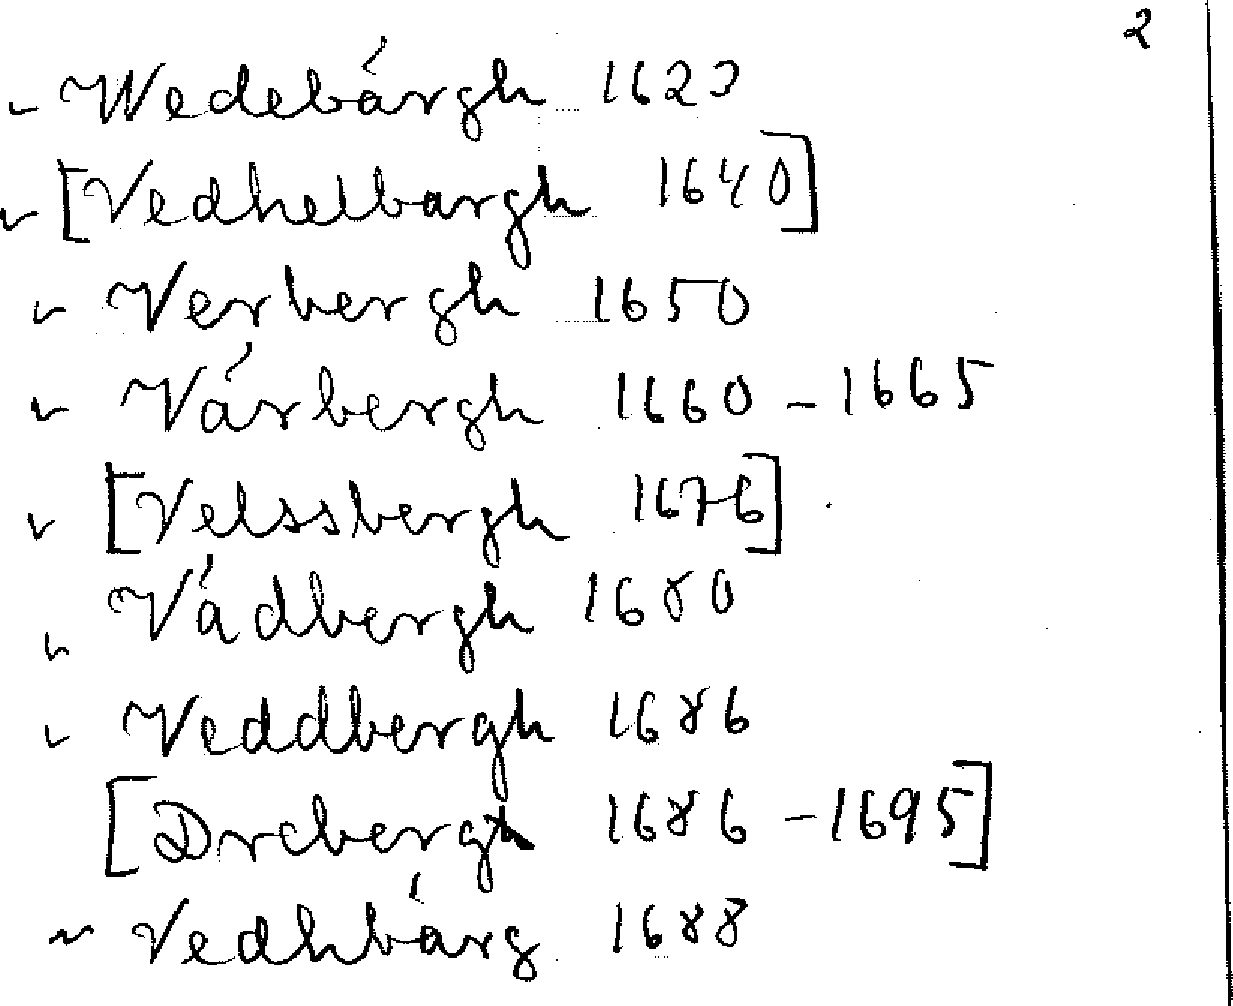 2
Wedebárgh 1623
[Vedhelbargh 1640]
Verbergh 1650
Várbergh 1660 - 1665
[Velssbergh 1676]
Vádbergh 1680
Veddbergh 1686
[Drcbergh 1686 - 1695]
Vedhbárg 1688